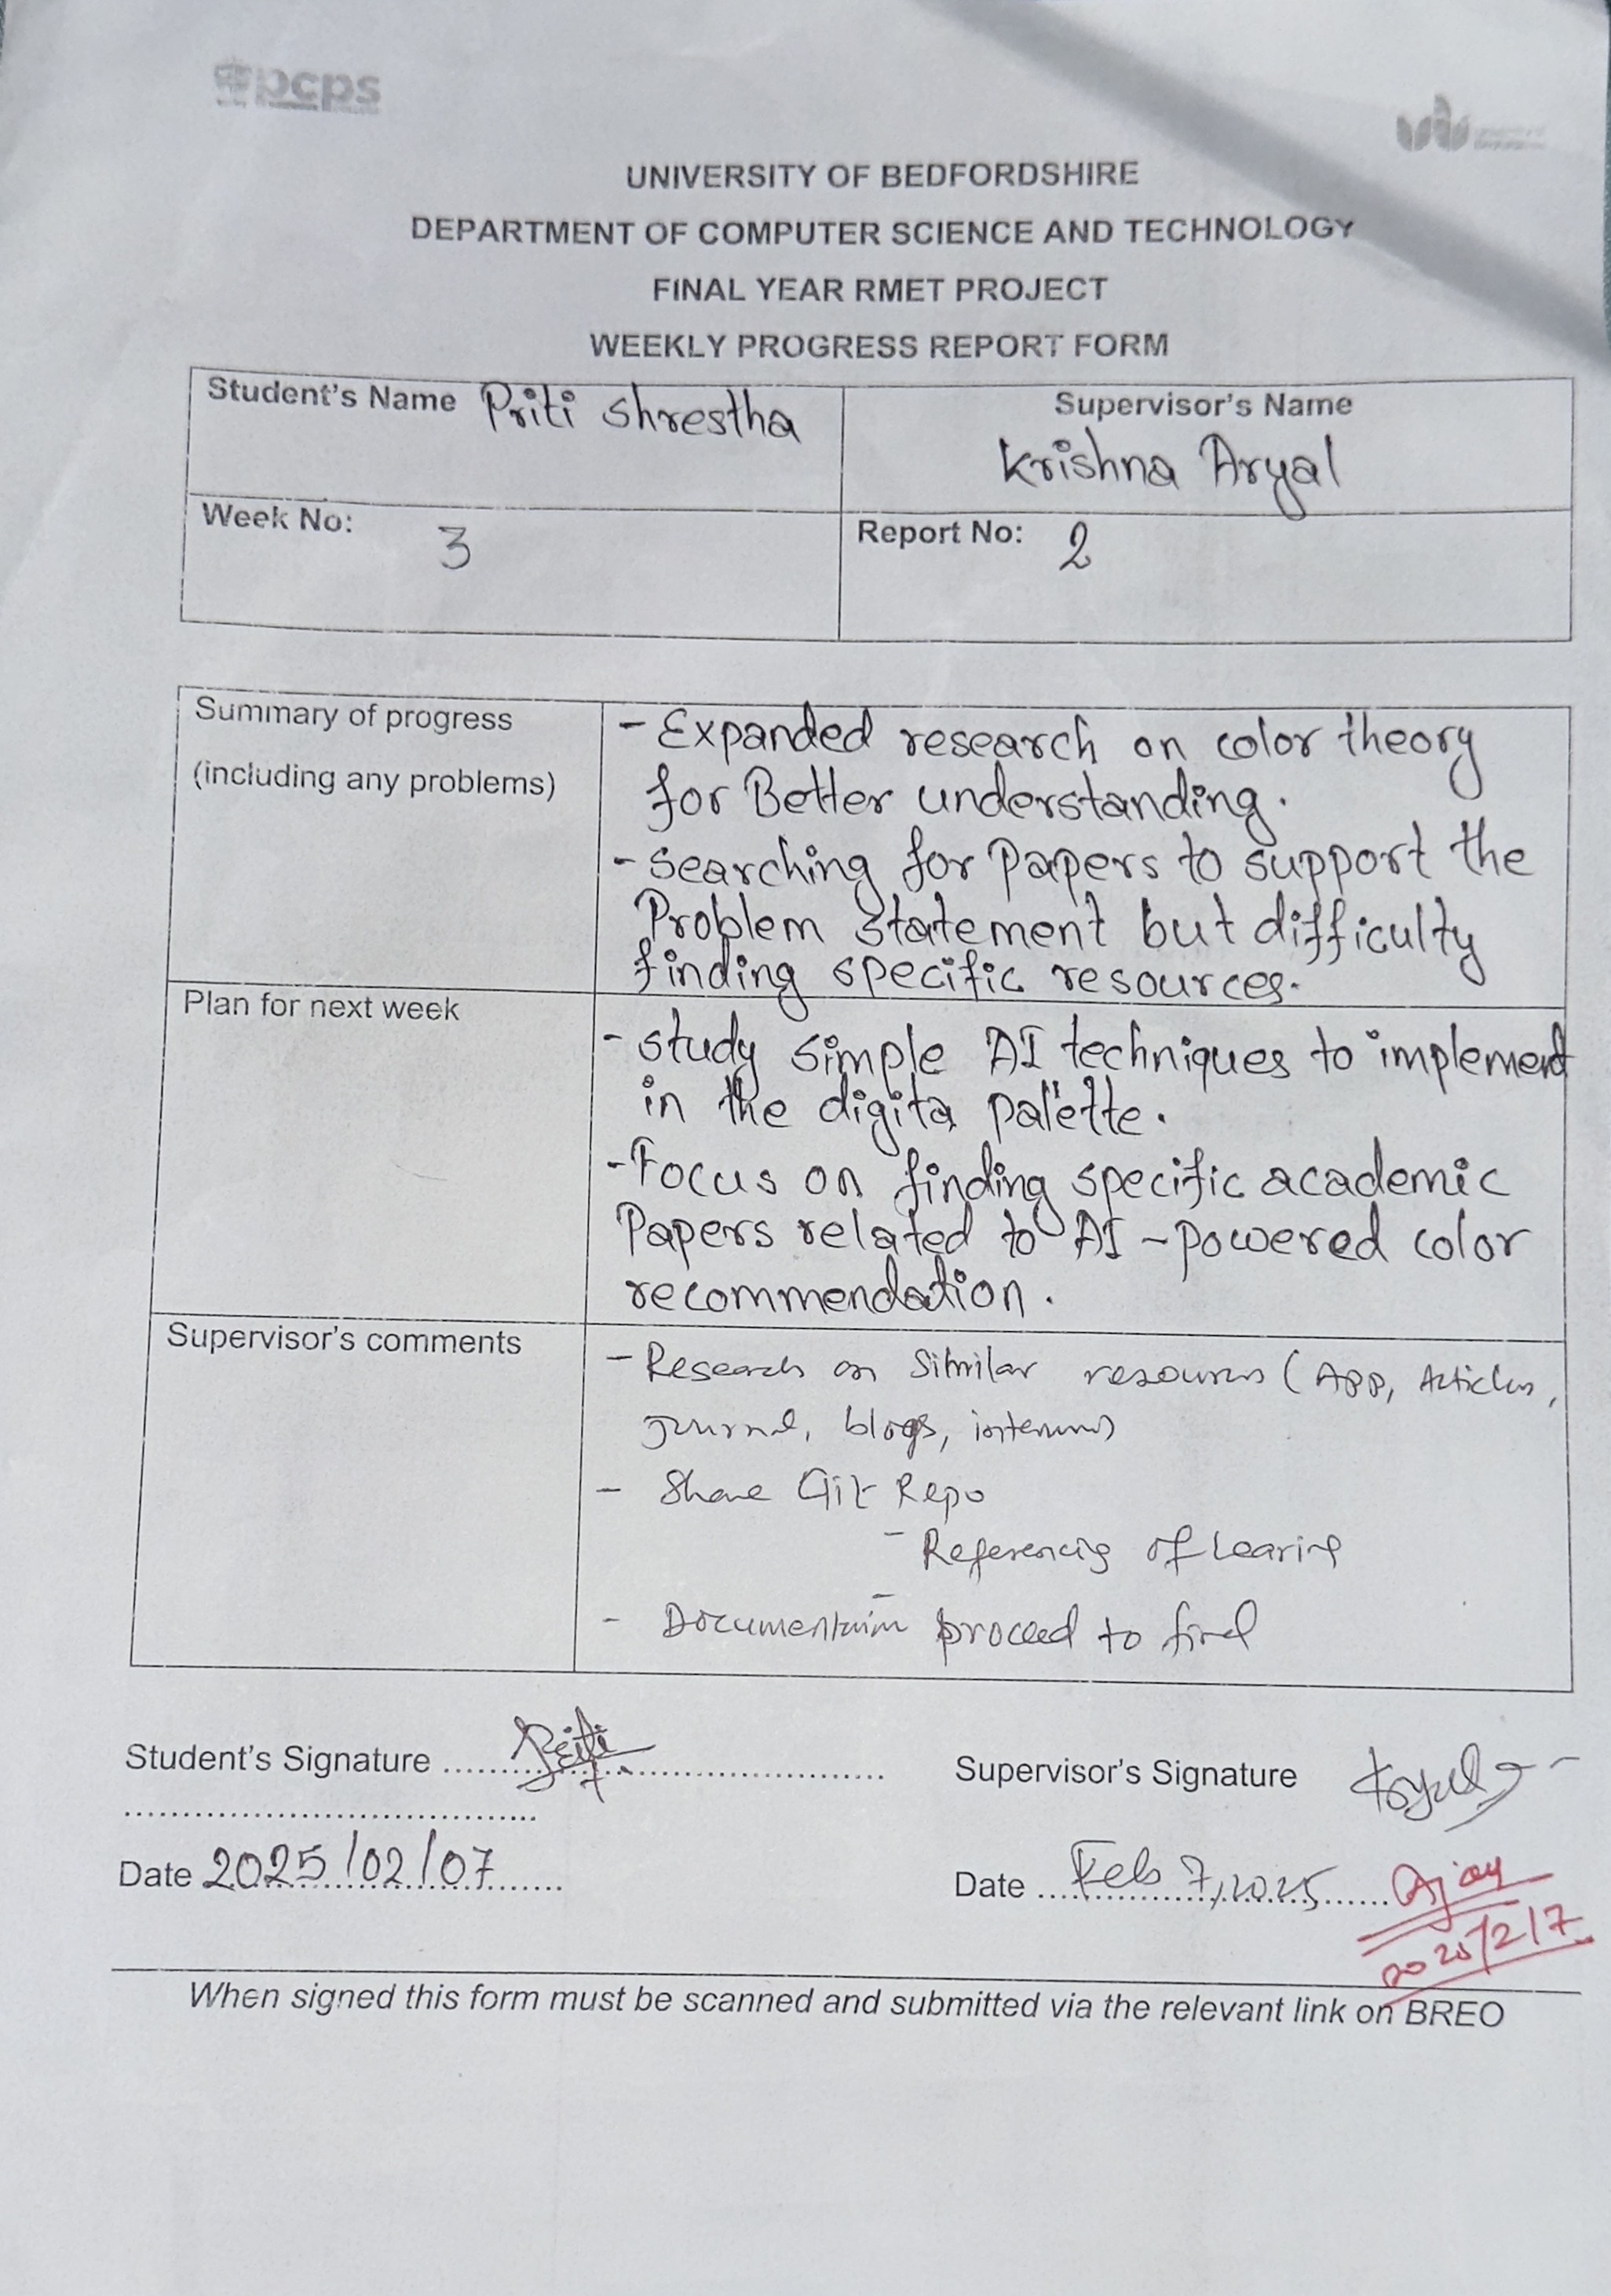 pcps
UNIVERSITY OF BEDFORDSHIRE
DEPARTMENT OF COMPUTER SCIENCE AND TECHNOLOGY
FINAL YEAR RMET PROJECT
WEEKLY PROGRESS REPORT FORM
Student's Name Priti Shrestha
Supervisor's Name
Krishna Aryal
Week No: 3
Report No: 2
Summary of progress
(including any problems)
- Expanded research on color theory
for Better understanding.
- Searching for Papers to support the
Problem statement but difficulty
finding specific resources.
Plan for next week
- study simple AI techniques to implement
in the digita palette.
- Focus on finding specific academic
Papers related to AI-powered color
recommendation.
Supervisor's comments
- Research on Similar resources (App, Articles,
journal, blogs,
- Share Git Repo
- Referencing of
- proceed to final
Student's Signature Priti
Supervisor's Signature
Date 2025/02/07
Date Feb 7, 2025
Ajay
2025/2/7
When signed this form must be scanned and submitted via the relevant link on BREO